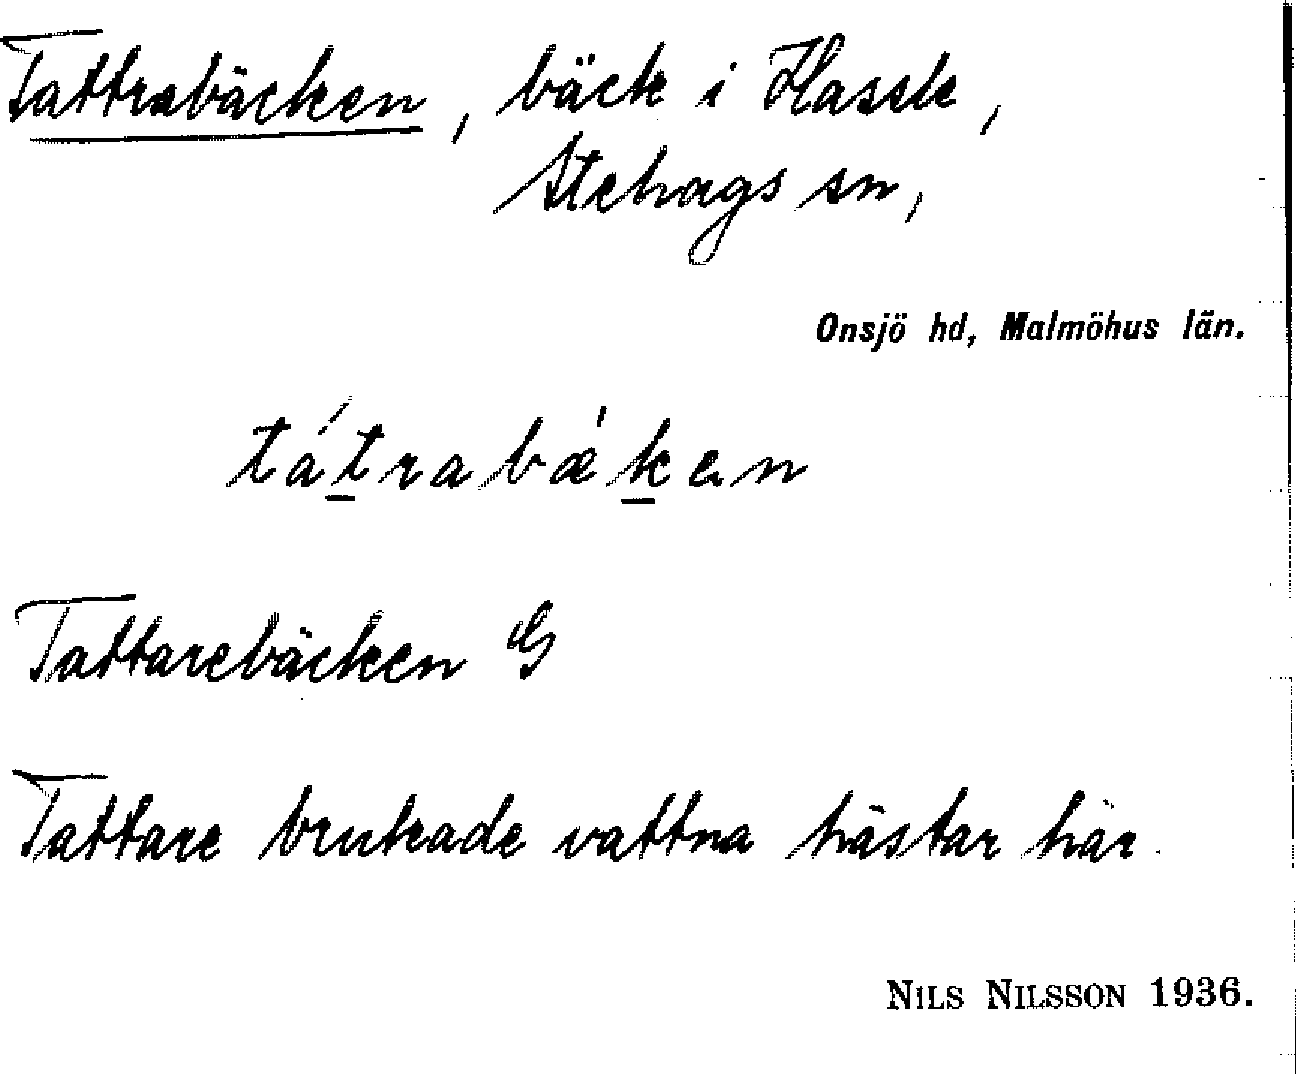 Tattrabäcken, bäck i Hassle,
Stehags sn,
Onsjö hd, Malmöhus län.
tátrabǽken
Tattarebäcken G
Tattare brukade vattna hästar här.
NILS NILSSON 1936.